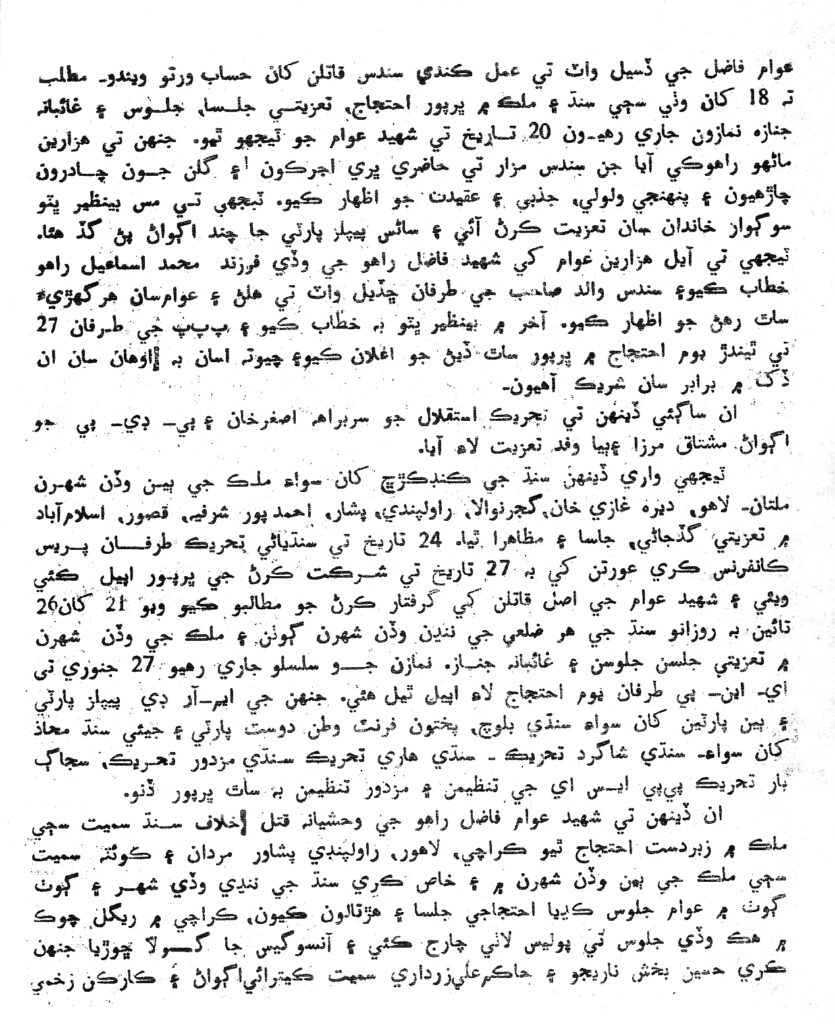 عوام فاضل جي ڏسيل واٽ تي عمل ڪندي سندس قاتلن کان حساب ورتو ويندو۔ مطلب
تہ 18 کان وٺي سڄي سنڌ ۽ ملڪ ۾ ڀرپور احتجاج، تعزيتي جلسا، جلوس ۽ غائبانہ
جنازه نمازون جاري رهيون 20 تاريخ تي شهيد عوام جو ٽيجهو ٿيو. جنهن تي هزارين
ماڻهو راهوڪي آيا جن سندس مزار تي حاضري ڀري اجرڪون ۽ گلن جون چادرون
چاڙهيون ۽ پنهنجي ولولي، جذبي ۽ عقيدت جو اظهار ڪيو. ٽيجهي تي مس بينظير ڀٽو
سوڳوار خاندان سان تعزيت ڪرڻ آئي ۽ ساڻس پيپلز پارٽي جا چند اڳواڻ پڻ گڏ هئا.
ٽيجهي تي آيل هزارين عوام کي شهيد فاضل راهو جي وڏي فرزند محمد اسماعيل راهو
خطاب ڪيو۽ سندس والد صاحب جي طرفان ڇڏيل واٽ تي هلڻ ۽ عوام سان هر گهڙيءَ
ساٿ رهڻ جو اظهار ڪيو. آخر ۾ بينظير ڀٽو بہ خطاب ڪيو ۽ پ پ پ جي طرفان 27
تي ٿيندڙ يوم احتجاج ۾ ڀرپور ساٿ ڏيڻ جو اعلان ڪيو۽ چيو تہ اسان بہ اوهان سان ان
ڏک ۾ برابر سان شريڪ آهيون۔
ان ساڳئي ڏينهن تي تحريڪ استقلال جو سربراهہ اصغر خان ۽ پي۔ ڊي۔ پي جو
اڳواڻ مشتاق مرزا ۽ ٻيا وفد تعزيت لاءِ آيا.
ٽيجهي واري ڏينهن سنڌ جي ڪنڊڪڙڇ کان سواءِ ملڪ جي ٻين وڏن شهرن
ملتان۔ لاهو، ديره غازي خان، گجرنوالا، راولپنڊي، پشار، احمد پور شرفيہ، قصور، اسلام آباد
۾ تعزيتي گڏجاڻي، جلسا ۽ مظاهرا ٿيا. 24 تاريخ تي سنڌياڻي تحريڪ طرفان پريس
ڪانفرنس ڪري عورتن کي بہ 27 تاريخ تي شرڪت ڪرڻ جي ڀرپور اپيل ڪئي
ويئي ۽ شهيد عوام جي اصل قاتلن کي گرفتار ڪرڻ جو مطالبو ڪيو ويو 21 کان 26
تائين بہ روزانو سنڌ جي هر ضلعي جي ننڍن وڏن شهرن ڳوٺن ۽ ملڪ جي وڏن شهرن
۾ تعزيتي جلسن جلوسن ۽ غائبانہ جناز۔ نمازن جو سلسلو جاري رهيو 27 جنوري تي
اي۔ اين۔ پي طرفان يوم احتجاج لاءِ اپيل ٿيل هئي. جنهن جي ايم۔آر ڊي پيپلز پارٽي
۽ ٻين پارٽين کان سواءِ سنڌي بلوچ، پختون فرنٽ وطن دوست پارٽي ۽ جيئي سنڌ محاذ
کان سواءِ۔ سنڌي شاگرد تحريڪ ۔ سنڌي هاري تحريڪ سنڌي مزدور تحريڪ، سجاڳ
ٻار تحريڪ پي پي ايس اي جي تنظيمن ۽ مزدور تنظيمن بہ ساٿ ڀرپور ڏنو.
ان ڏينهن تي شهيد عوام فاضل راهو جي وحشيانہ قتل خلاف سنڌ سميت سڄي
ملڪ ۾ زبردست احتجاج ٿيو ڪراچي، لاهور، راولپنڊي پشاور مردان ۽ ڪوئٽہ سميت
سڄي ملڪ جي ٻين وڏن شهرن ۾ ۽ خاص ڪري سنڌ جي ننڍي وڏي شهر ۽ ڳوٺ
ڳوٺ ۾ عوام جلوس ڪڍيا احتجاجي جلسا ۽ هڙتالون ڪيون، ڪراچي ۾ ريگل چوڪ
۾ هڪ وڏي جلوس تي پوليس لاٺي چارج ڪئي ۽ آنسو گيس جا گولا ڇوڙيا جنهن
ڪري حسين بخش ناريجو ۽ حاڪم علي زرداري سميت ڪيترائي اڳواڻ ۽ ڪارڪن زخمي